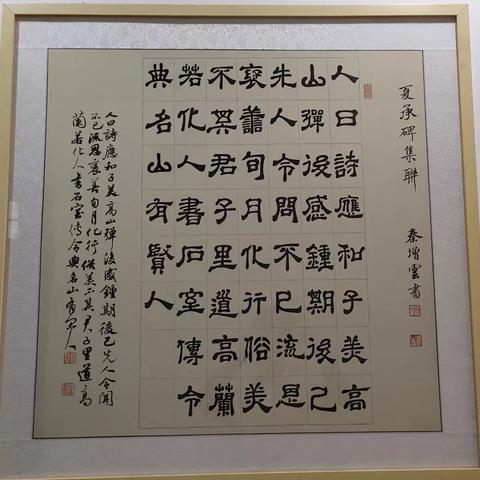 夏承碑集聯
秦增雲書
人日詩應和子美高
山彈後感鍾期後己
先人令問不已流恩
褒善旬月化行俗美
不其君子里道高蘭
若化人書石室傳令
典名山有賢人
人日詩應和子美高山彈後感鍾期後己先人令聞
不已流恩褒善旬月化行俗美不其君子里道高
蘭若化人書石室傳令典名山有賢人